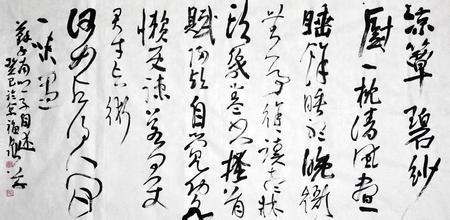 涼簟碧紗
厨一枕清風晝
睡餘睡聽晚衙
無一事徐徐讀盡床
頭幾卷書搔首
賦歸歟自覺功名
懶更疏若問使
君才與術
何如占得人間
一味愚
蘇子南鄉子自述
癸巳